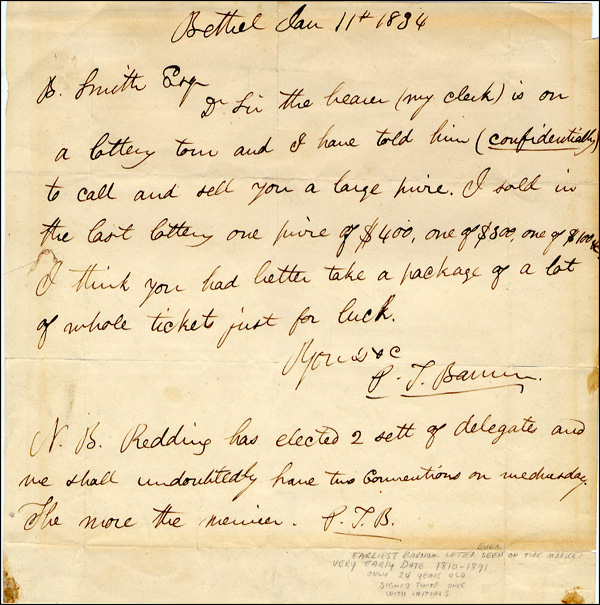 Bethel Jan 11th 1834
B. Smith Esqr
Dr Sir the bearer (my clerk) is on
a lottery tour and I have told him (confidentially)
to call and sell you a large prize. I sold in
the last lottery one prize of $400, one of $300, one of $100 &c
I think you had better take a package of a lot
of whole tickets just for luck.
Yours &c
P. T. Barnum.
N. B. Redding has elected 2 sett of delegates and
we shall undoubtedly have two Conventions on wednesday.
The more the merrier. P. T. B.
EVER
EARLIEST BARNUM LETTER SEEN ON THE MARKET
VERY EARLY DATE 1810-1891
ONLY 24 YEARS OLD
SIGNED TWICE ONCE
WITH INITIALS